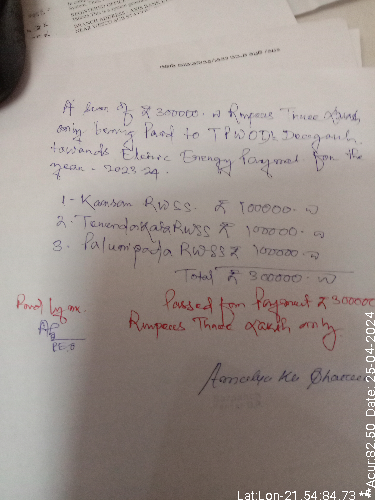 A sum of ₹ 300000.00 Rupees Three Lakh
only being Paid to TPWODL Deogarh
towards Electric Energy Payment for the
year - 2023-24.
1 - Kansar RWSS. ₹ 100000.00
2. RWSS ₹ 100000.00
3. RWSS ₹ 100000.00
Total ₹ 300000.00
Paid by me.
Passed for Payment ₹ 300000
Rupees Three Lakh only
PEO
Lat:Lon-21.54:84.73
**Acur:82.50 Date: 25-04-2024